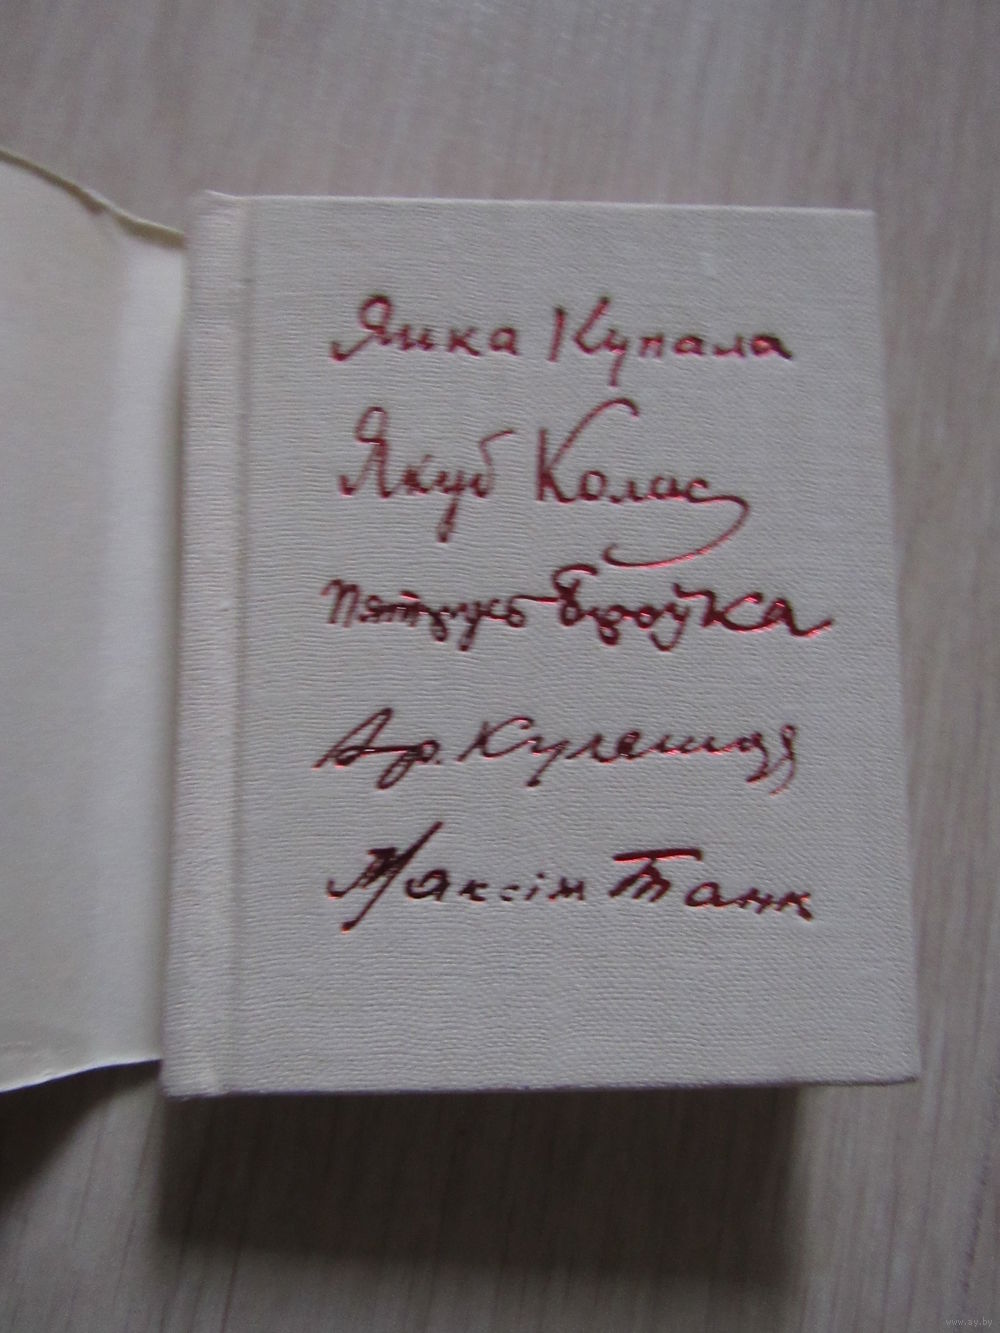 Янка Купала
Якуб Колас
Пятрусь Броўка
Ар. Куляшоў
Максім Танк
www.ay.by